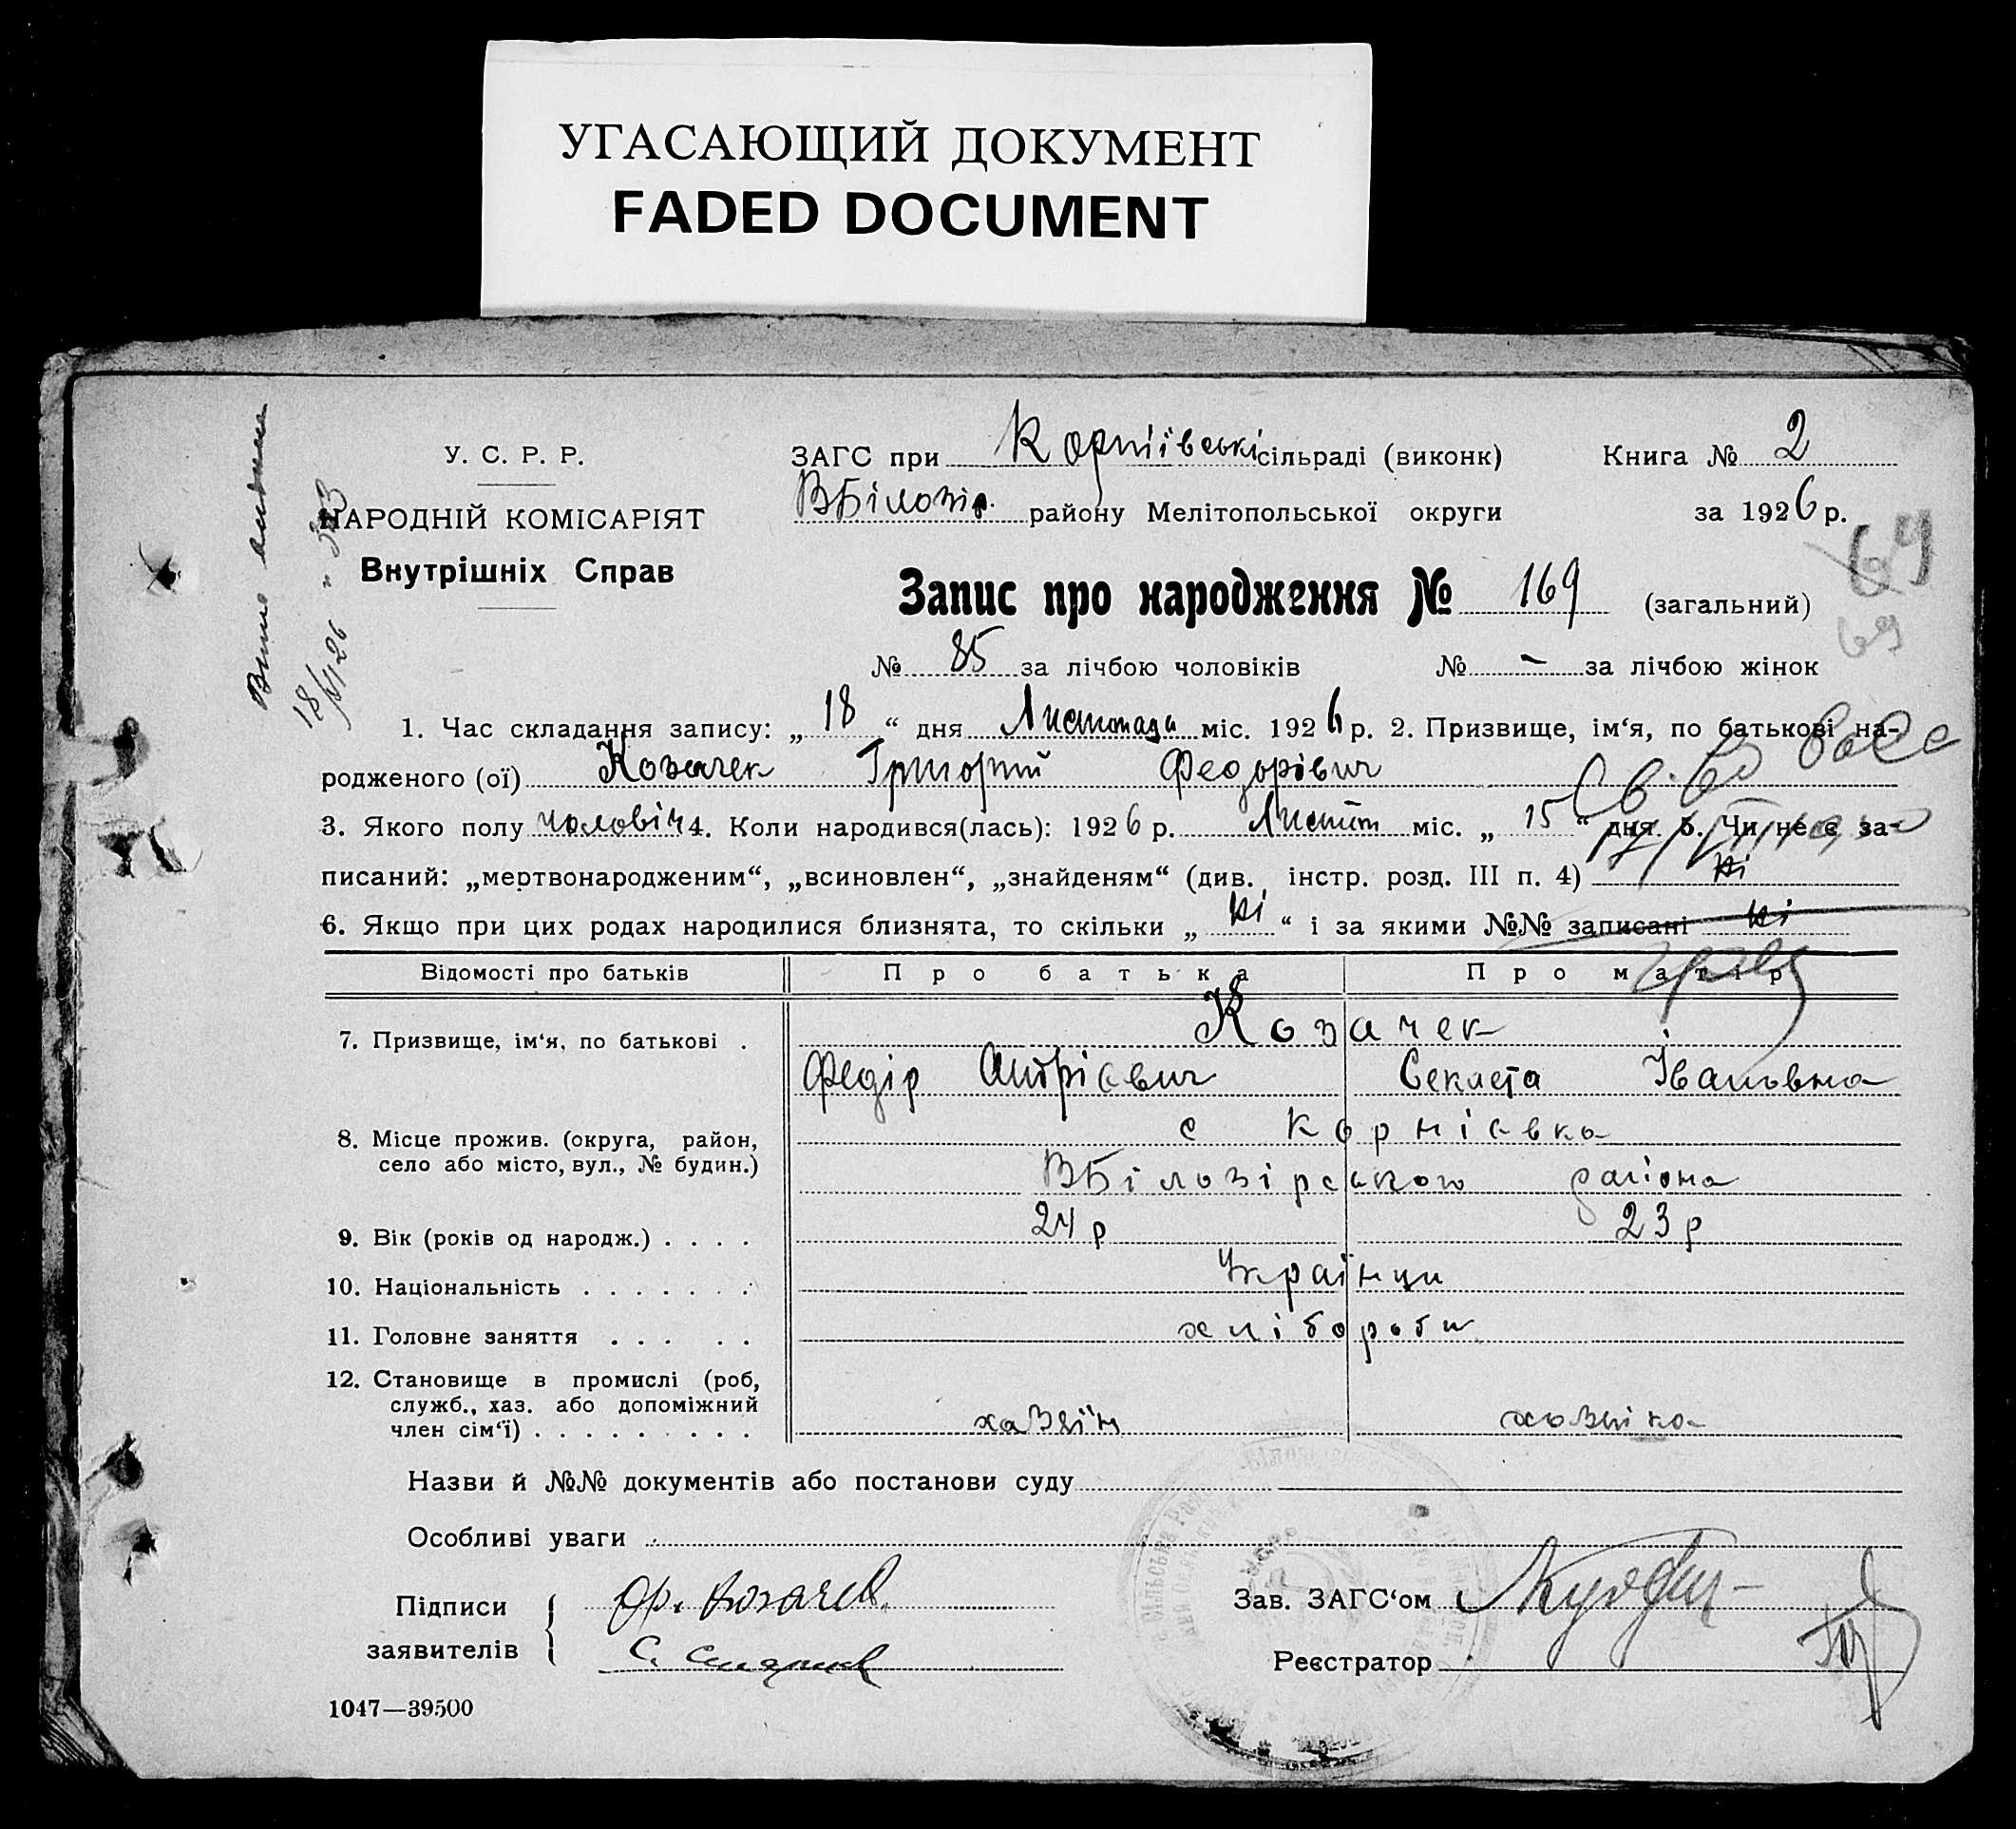 УГАСАЮЩИЙ ДОКУМЕНТ
FADED DOCUMENT
У. С. Р. Р.
НАРОДНІЙ КОМІСАРІЯТ
Внутрішніх Справ
ЗАГС при Корніївські сільраді (виконк)
Книга № 2
ВБілозір. району Мелітопольської округи
за 1926 р.
Запис про народження № 169 (загальний)
64
69
№ 85 за лічбою чоловіків № — за лічбою жінок
1. Час складання запису: „ 18 “ дня Листопада міс. 1926 р. 2. Призвище, ім‘я, по батькові на-
родженого (ої) Козачек Григорий Федорівич
3. Якого полу чоловіч 4. Коли народився(лась): 1926 р. Листоп міс. „ 15 “ дня 5. Чи не є за-
писаний: „мертвонародженим“, „всиновлен“, „знайденям“ (див. інстр. розд. III п. 4) ні
6. Якщо при цих родах народилися близнята, то скільки „ ні “ і за якими №№ записані ні
Відомості про батьків Про батька Про матір
7. Призвище, ім‘я, по батькові . Козачек
Федір Андрієвич Секлета Івановна
8. Місце прожив. (округа, район, с Корніевка
село або місто, вул., № будин.) ВБілозірського району
9. Вік (років од народж.) . . . . 24 р 23 р
10. Національність . . . . . . . Українци
11. Головне заняття . . . . . хлібороби
12. Становище в промислі (роб,
служб., хаз. або допоміжний
член сім‘ї) . . . . . . . . . хазяїн хозяйка
Назви й №№ документів або постанови суду
Особливі уваги
Підписи Фр. Козачек
Зав. ЗАГС‘ом
заявителів
Реєстратор
1047—39500